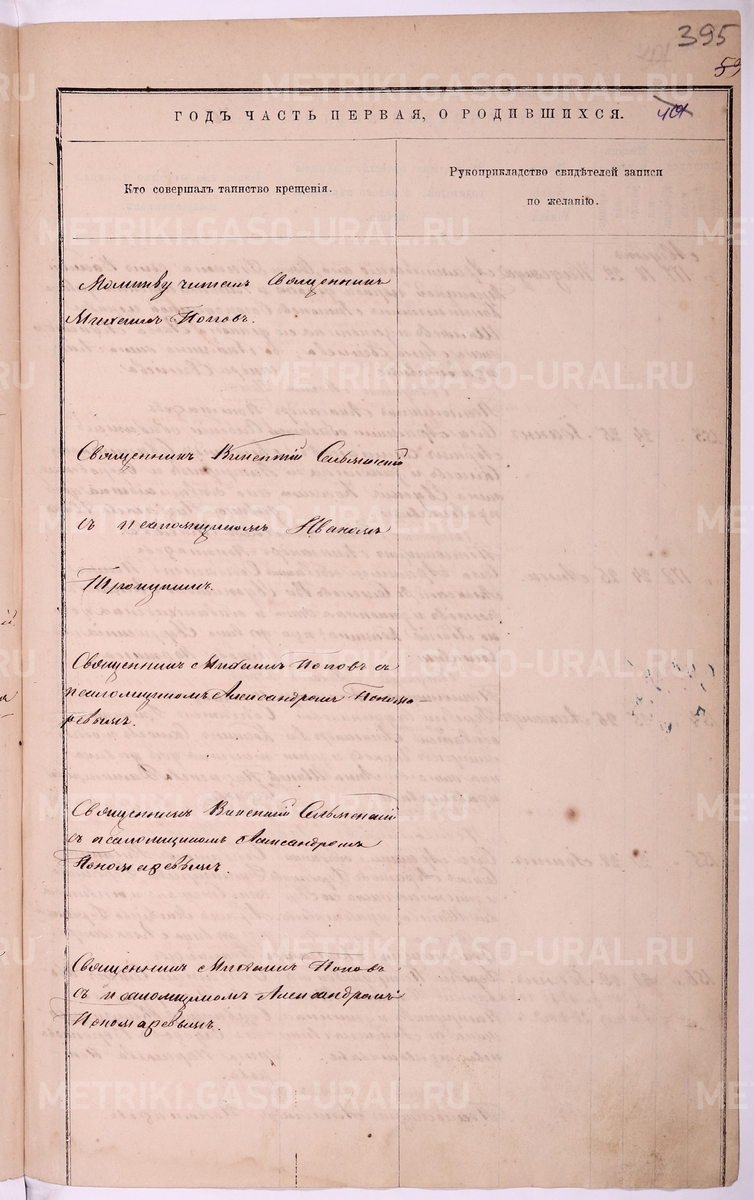 395
59
ГОДЪ ЧАСТЬ ПЕРВАЯ, О РОДИВШИХСЯ.
Кто совершалъ таинство крещенія.
Рукоприкладство свидѣтелей записи
по желанію.
Молитву читалъ Священникъ
Михаилъ Поповъ.
Священникъ Викентій
съ псаломщикомъ Иваномъ
Священникъ Михаилъ Поповъ съ
псаломщикомъ Александромъ Поно́ма-
ревымъ.
Священникъ Викентій
съ псаломщикомъ Александромъ
Пономаревымъ.
Священникъ Михаилъ Поповъ
съ псаломщикомъ Александромъ
Пономаревымъ.
METRIKI.GASO-URAL.RU